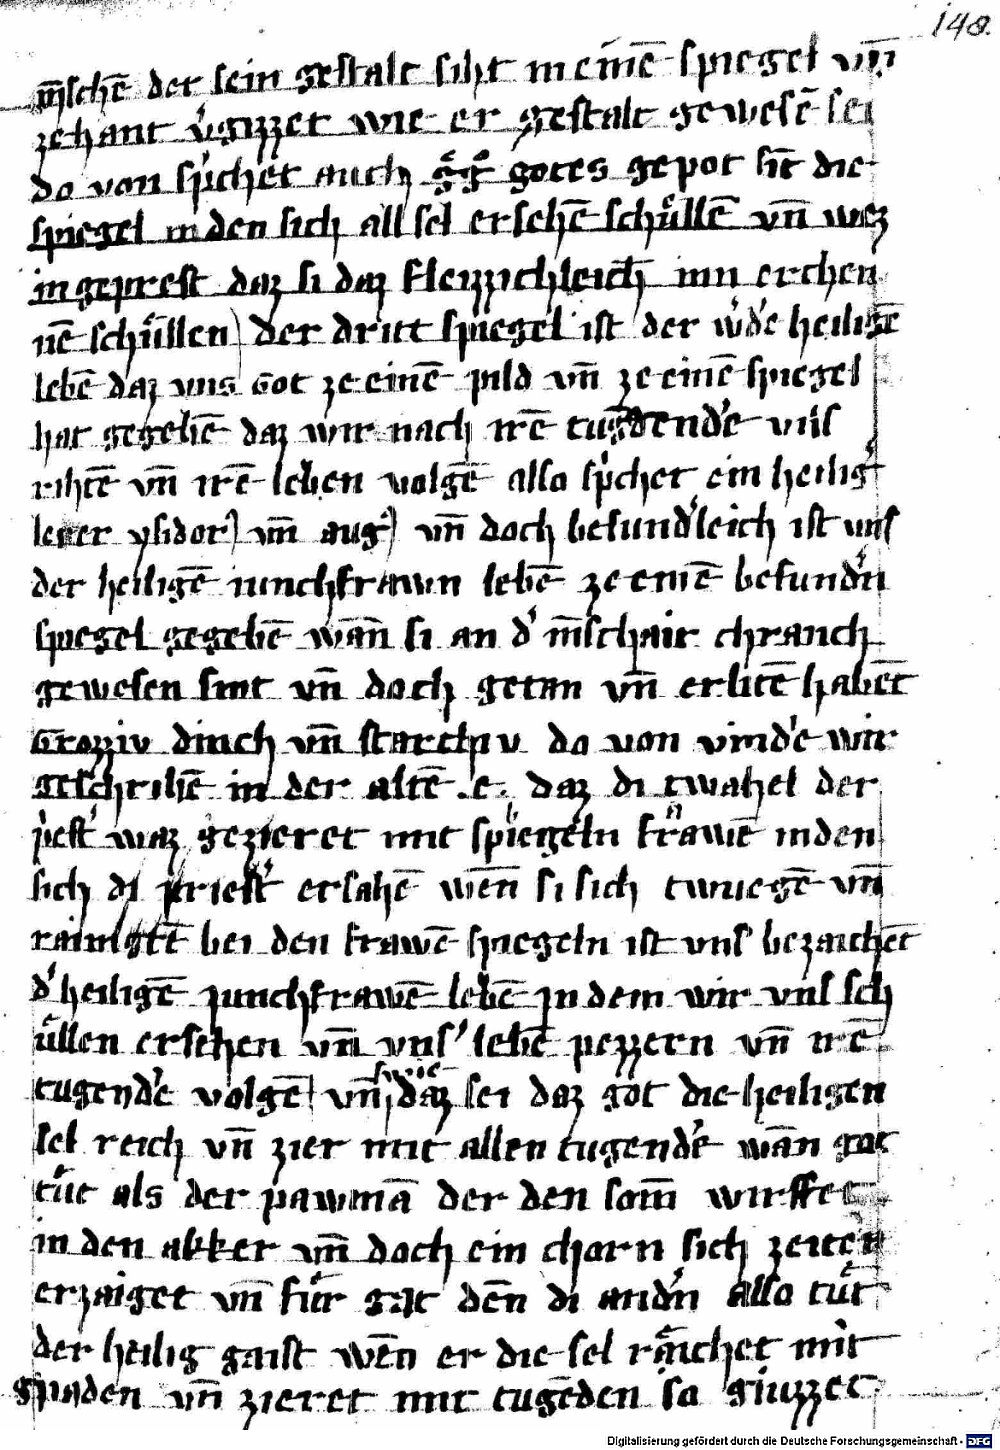 148.
m̄schē der sein gestalt siht in einē spiegel vn̄
zehant v'gizzet wie er gestalt gewesē sei
do von sp'ichet auch gͤgͦ gotes gepot sīt die
spiegel in den sich all sel ersehē schüllē vn̄ waz
in geprest daz si daz fleizzichleich inn erchen
nē schüllen) Der dritt spiegel ist der w'd'e heiligē
lebē daz vns Got ze einē pild vn̄ ze einē spiegel
hat gegebē daz wir nach irē tugēde'd'e vns
rihtē vn̄ irē leben volgē also sp'ichet ein heilig'
lerer ysidor) vn̄ aug') vn̄ doch besund'leich ist vns
der heiligē iunchfrawn lebē ze einē besund'n
spiegel gegebē wān si an d' m̄schait chranch
gewesen sint vn̄ doch getan vn̄ erlitē habēt
Grozziv dinch vn̄ starchiv do von vind'e wir
geschribē in der altē .e. daz di twahel der
p'est' waz gezieret mit spiegeln frawē in den
sich di priest' ersahē wēn si sich twuegē vn̄
rainigtē bei den frawē spiegeln ist vns bezaichēt
d' heiligē junchfrawē lebē in dem wir vns sch
üllen ersehen vn̄ vns' lebē pezzern vn̄ irē
tugend'e volgē) vn̄ swie daz sei daz got die heiligen
sel reich vn̄ zier mit allen tugend'e wān got
tüt als der pawmā der den som̄ wirffet
in den akker vn̄ doch ein chorn sich zeitē'n
erzaiget vn̄ für gat dēn di and'n also tüt
der heilig gaist wēn er die sel räichet mit
gnaden vn̄ zieret mit tugēden so giuzzet
Digitalisierung gefördert durch die Deutsche Forschungsgemeinschaft - DFG